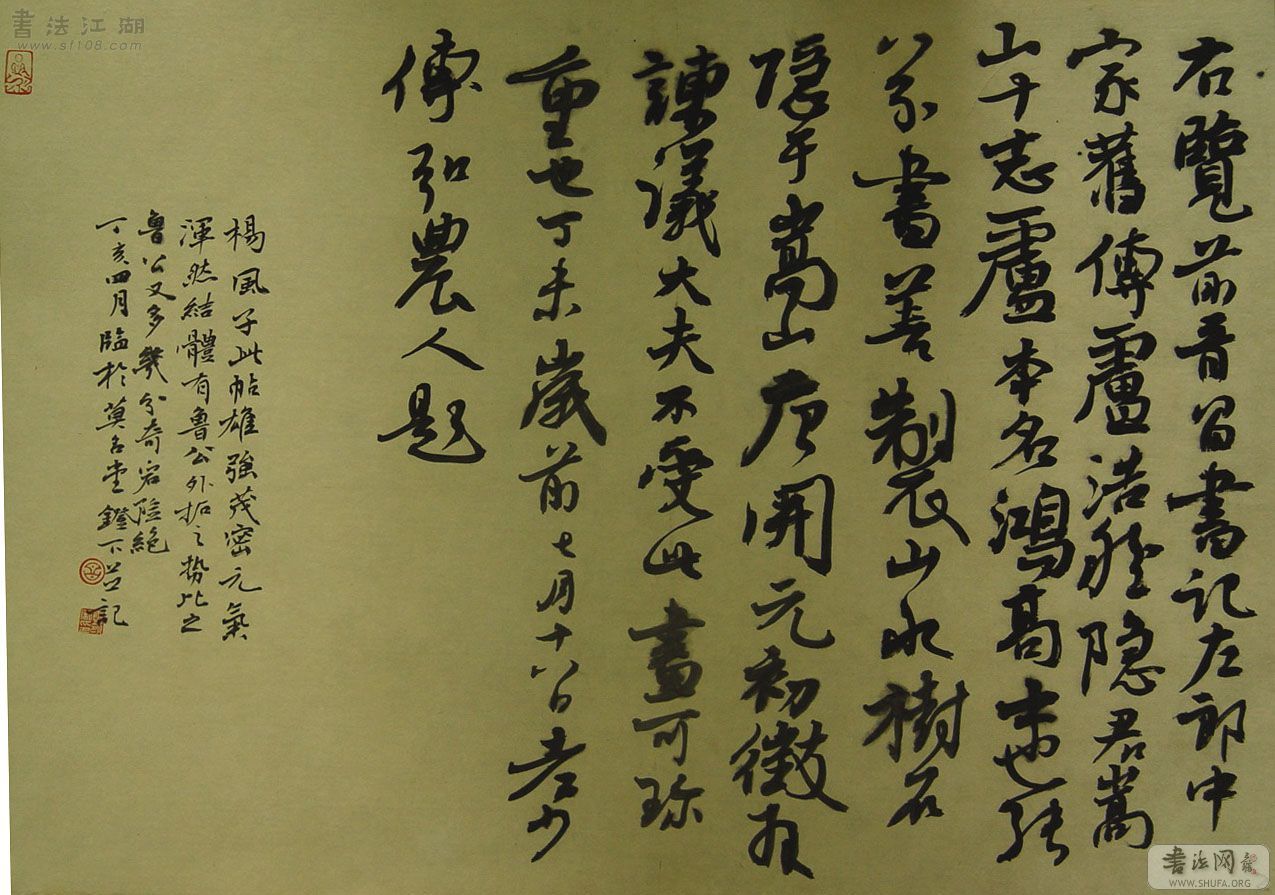 右覽前晉昌書記左郎中
家舊傳盧浩然隱君嵩
山十志盧本名鴻高士也能
八分書善製山水樹石
隱于嵩山唐開元初徵拜
諫議大夫不受此畫可珍
重也丁未歲前七月十八日老少
傅弘農人題
楊風子此帖雄強茂密元氣
渾然結體有魯公外拓之勢比之
魯公又多幾分奇宕險絕
丁亥四月臨於莫名堂鐙下並記
書法江湖
www.sf108.com
書法网
WWW.SHUFA.ORG